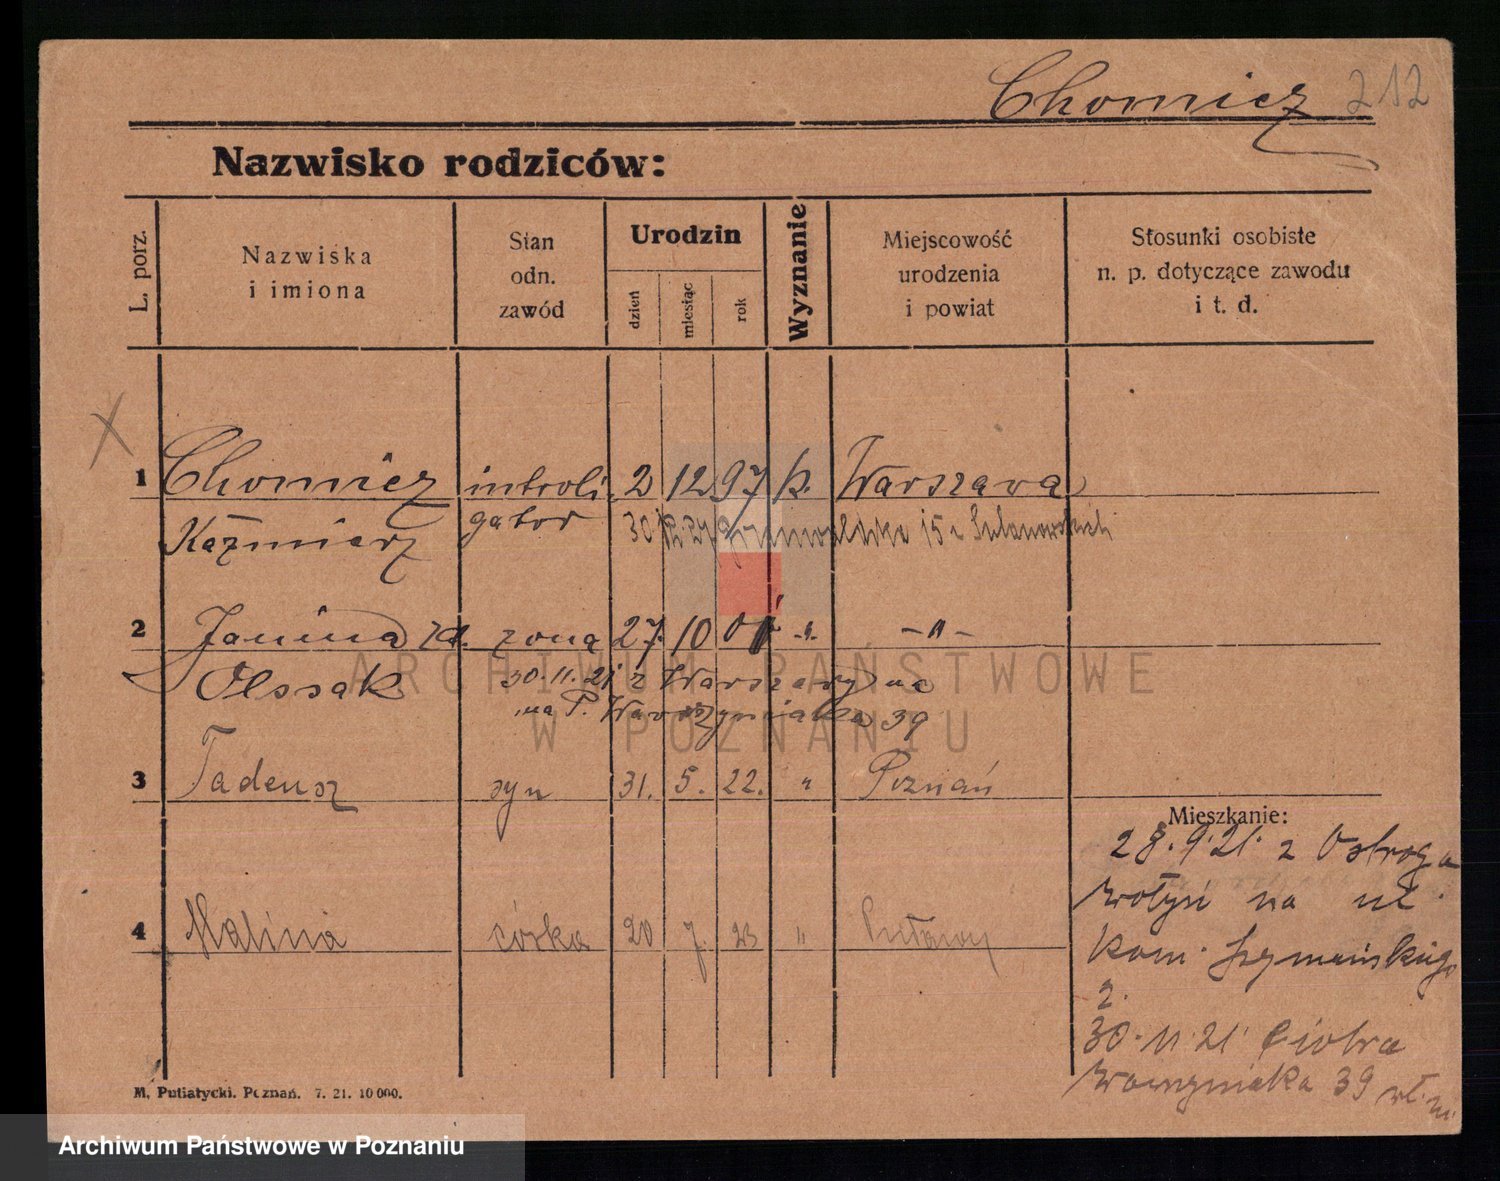 Chomicz 212
Nazwisko rodziców:
L. porz.
Nazwiska
i imiona
Stan
odn.
zawód
Urodzin
dzień
miesiąc
rok
Wyznanie
Miejscowość
urodzenia
i powiat
Stosunki osobiste
n. p. dotyczące zawodu
i t. d.
1 Chomicz introli 2 12 97 k. Warszawa
Kazmierz gator 30 15 z
2 Janina zd. zona 27. 10 01 -"- -"-
Olssak 30.11.21 z Warszawy na
na P. Wawrzyniaka 39
3 Tadeusz syn 31. 5. 22. " Poznań
Mieszkanie:
28.9.21. z Ostroga
wołyń na ul.
4 Halina córka 20 7. 23 " Puławy
Kom. Szymańskiego
2.
30.11.21 Piotra
Wawrzyniaka 39
M. Putiatycki. Poznań. 7. 21. 10 000.
ARCHIWUM PAŃSTWOWE
W POZNANIU
Archiwum Państwowe w Poznaniu